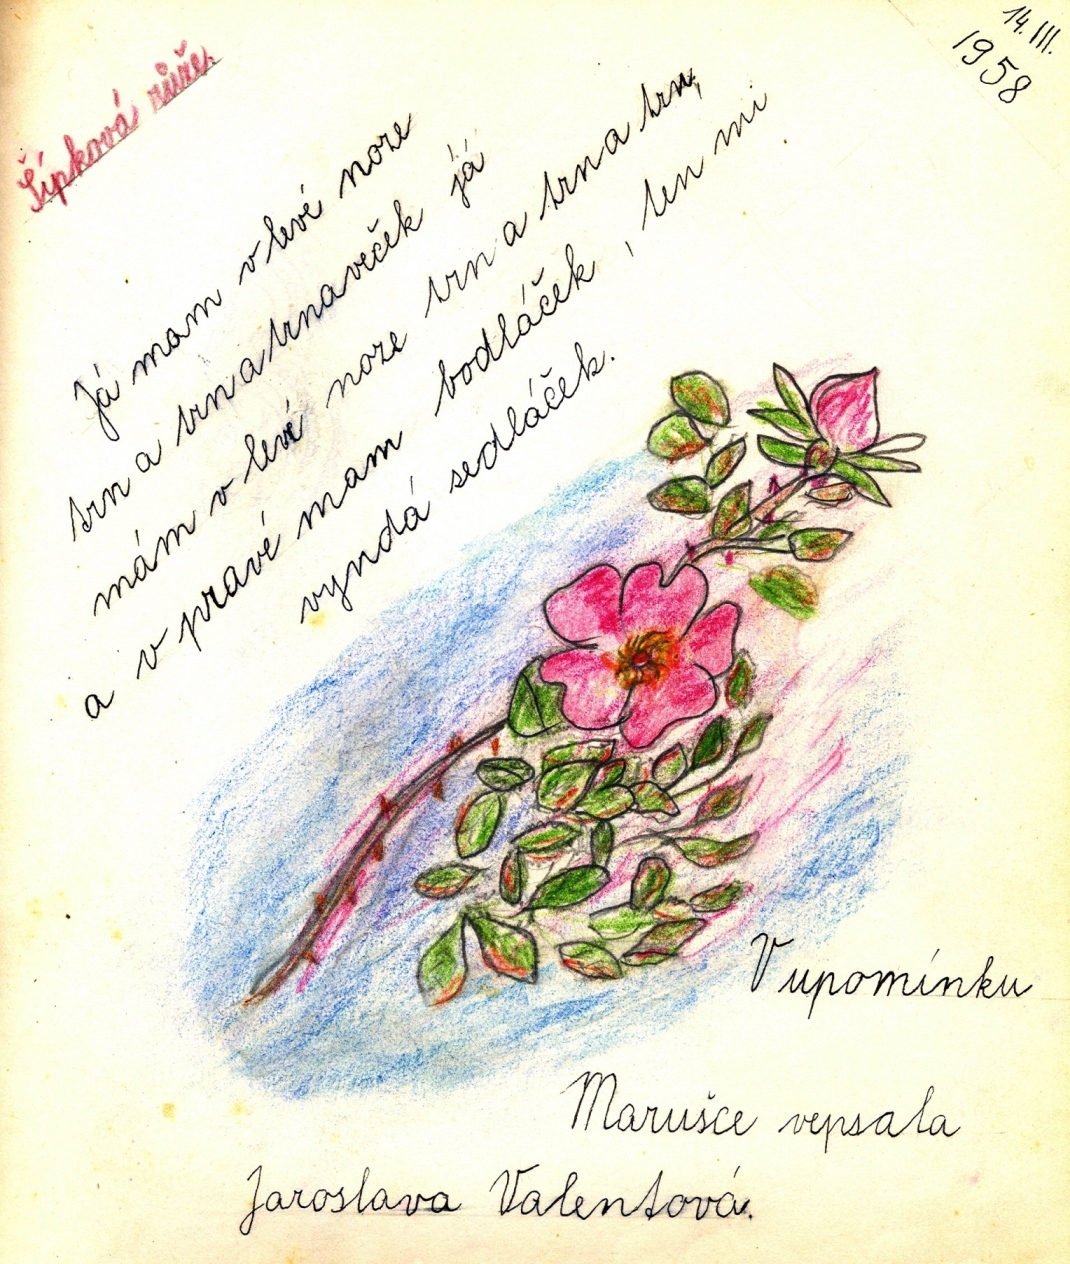 14. III.
1958
Šípková růže.
Já mam v levé noze
trn a trn a trnaveček já
mám v levé noze trn a trn a trn,
a v pravé mam bodláček, ten mi
vyndá sedláček.
V upomínku
Marušce vepsala
Jaroslava Valentová.